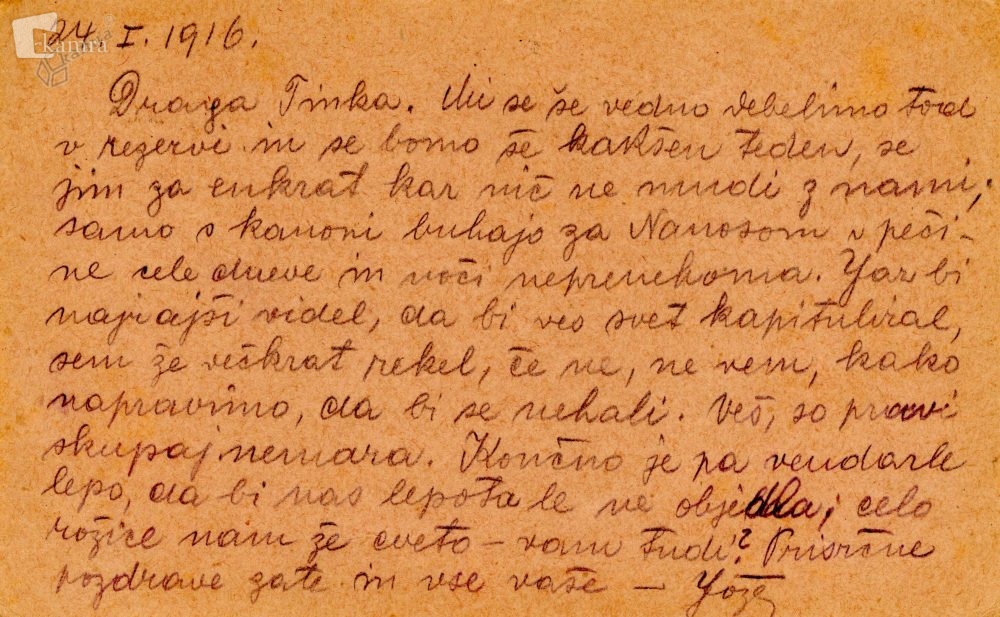 24. I. 1916.
Draga Tinka. Mi se še vedno debelimo tod
v rezervi in se bomo še kakšen teden, se
jim za enkrat kar nič ne mudi z nami;
samo s kanoni buhajo za Nanosom v peči-
ne cele dneve in noči neprenehoma. Jaz bi
najrajši videl, da bi ves svet kapituliral,
sem že večkrat rekel, če ne, ne vem, kako
napravimo, da bi se nehali. Veš, so pravi
skupaj nemara. Končno je pa vendarle
lepo, da bi nas lepota le ne objedla; celo
rožice nam že cveto – vam tudi? Prisrčne
pozdrave zate in vse vaše – Jože
kamra
kamra